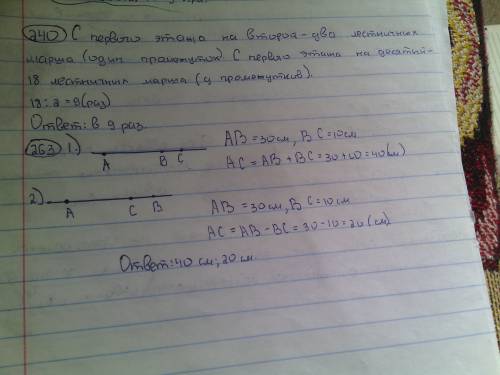 240) С первого этажа на второй - два лестничных
марша (один промежуток) С первого этажа на десятый -
18 лестничных марша (9 промежутков).
18 : 2 = 9 (раз)
Ответ: в 9 раз
263) 1.) A B C AB = 30 см, BC = 10 см
AC = AB + BC = 30 + 10 = 40 (см)
2) A C B AB = 30 см, BC = 10 см
AC = AB - BC = 30 - 10 = 20 (см)
Ответ: 40 см; 20 см